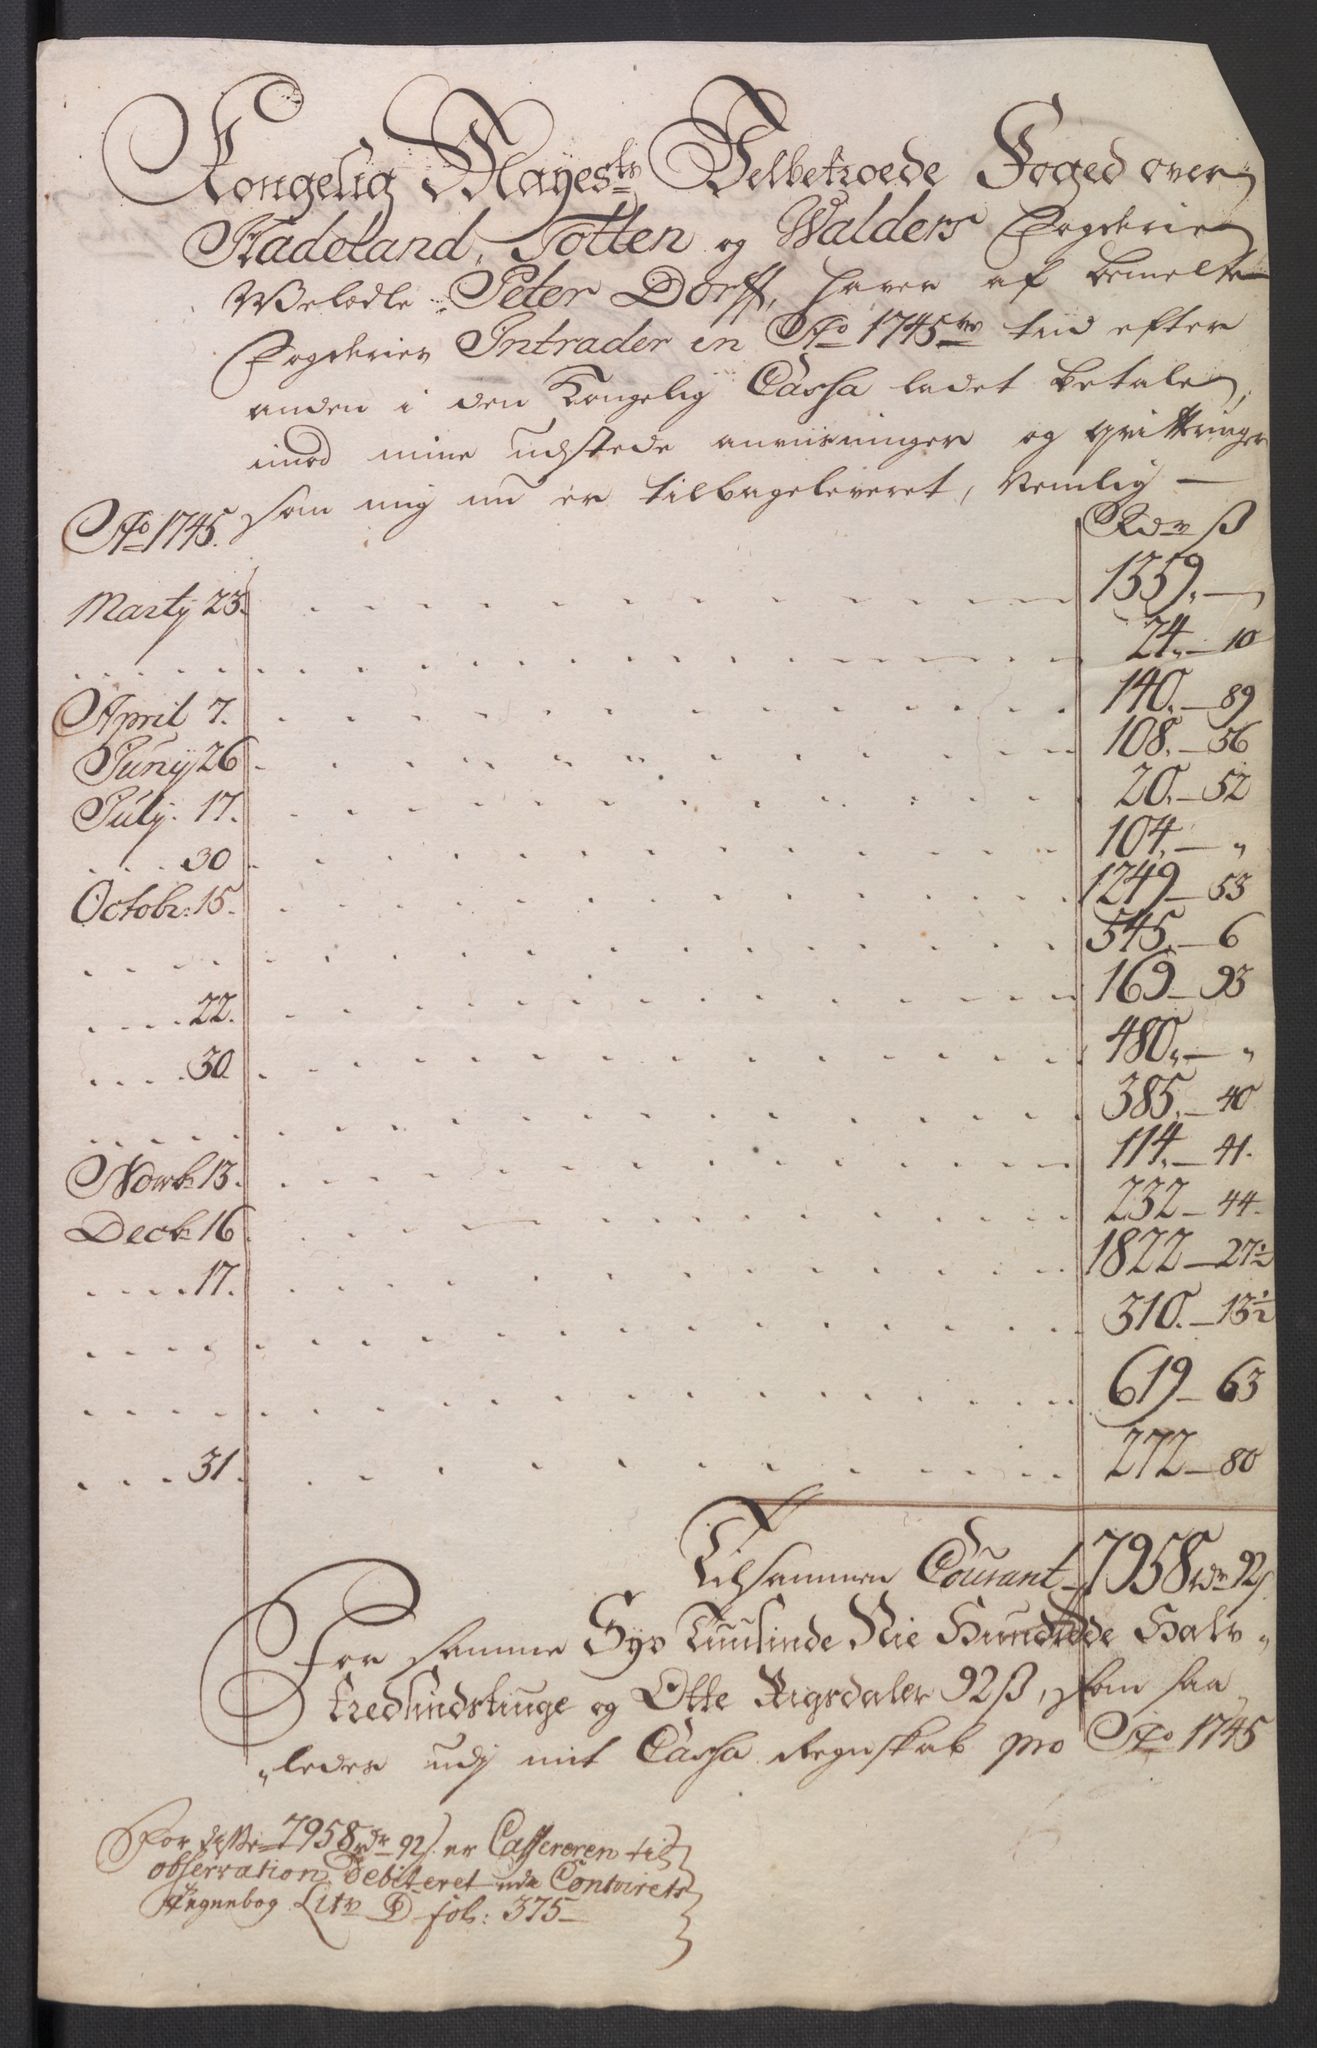 Kongelig Mayests Velbetroede Foged over
Hadeland, Totten og Walders Fogderie
Welædle Peter Dorff, haver af bemelte
Fogderies Intrader en Ao 1745tve tiid efter
anden i den Kongelig Cassa ladet betale,
imod mine udstede anviisninger og qvitteringer
som mig nu er tilbageleveret, Nemlig —
Ao 1745. Rdr ß
Marty 23. 1359. —
24. — 10
April 7. 140. — 89
Juny 26 108. — 56
July. 17. 20. — 52
30 104. — "
Octobr: 15. 1249 — 53
545. — 6
22. 169 — 93
30. 480. — "
385. — 40
Novbr 13. 114. — 41.
Decbr 16 232 — 44.
17. 1822 — 27½
310. — 13½
619 — 63
31. 272 — 80
Tilsammen Courant 7958rdr 92ß.
For samme Syv Tuusinde Nie Hundrede Halv-
tredsindstiuge og Otte Rigsdaler 92ß, som saa
ledes udj mit Cassa Regnskab pro Ao 1745
For disse 7958rdr 92ß. er Cassereren til
observation Debiteret udj Contoirets
Aegnebog Litr D fol: 375 —